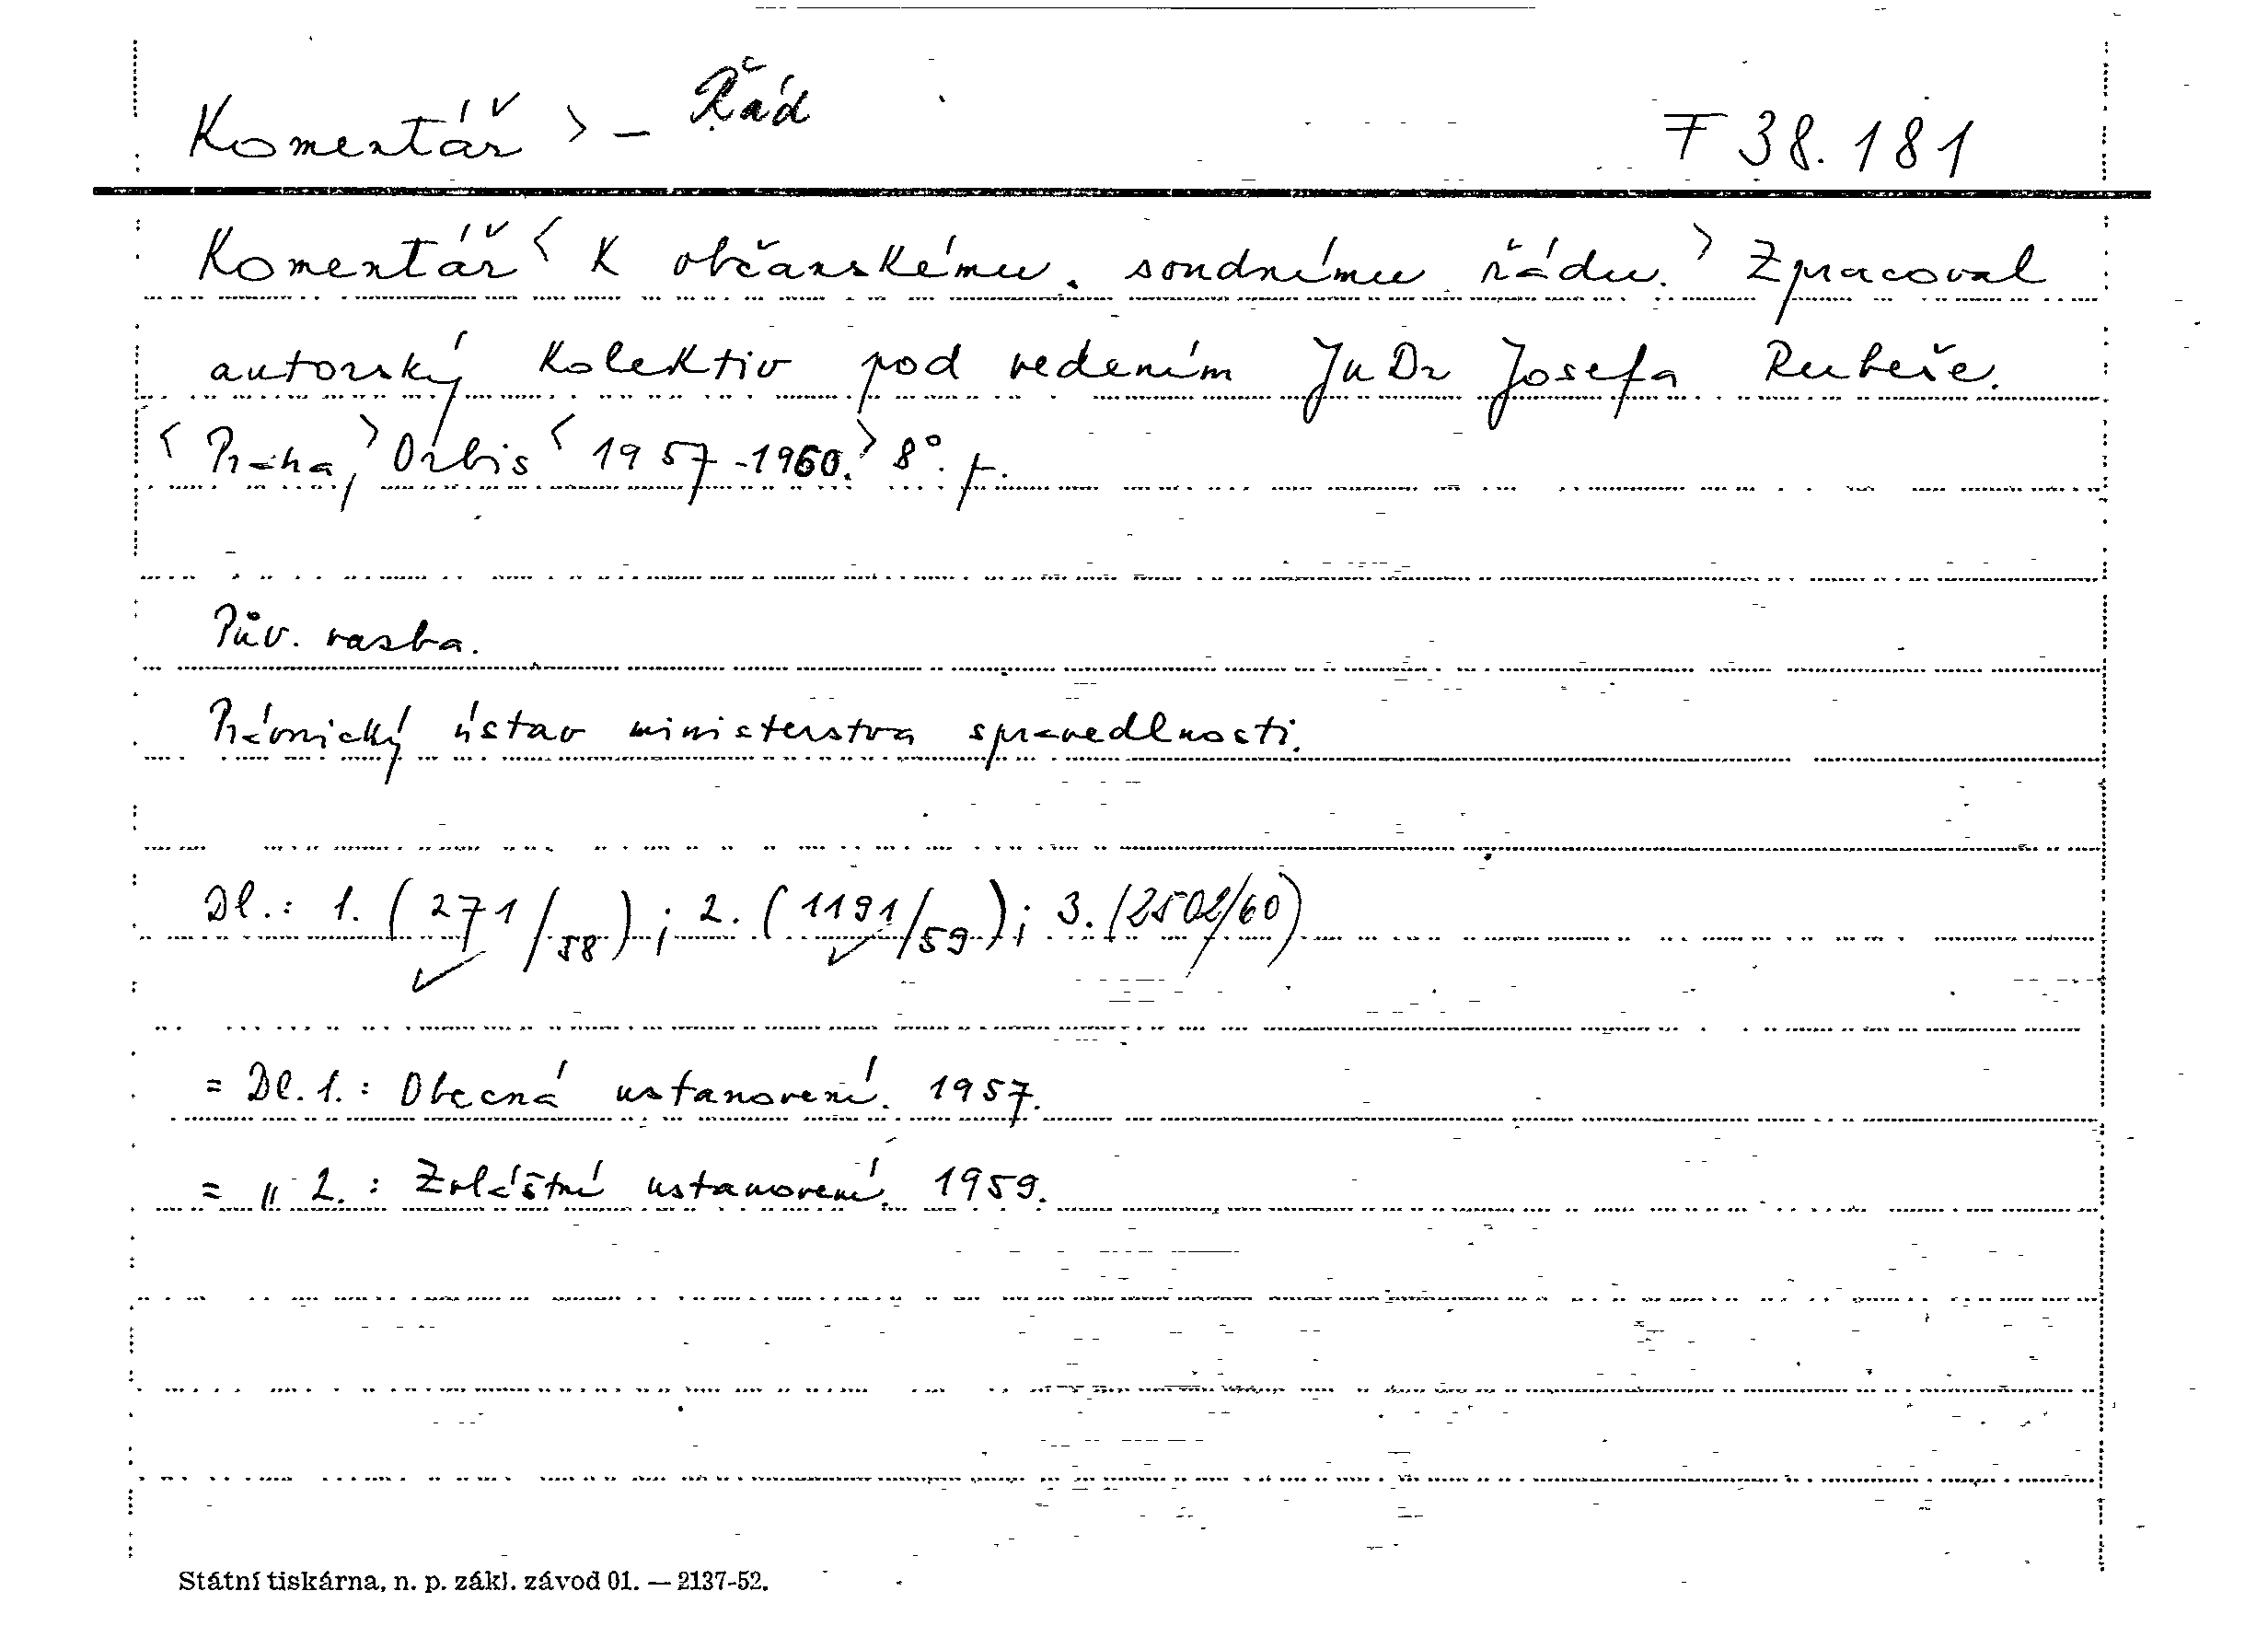 Komentář > – Řád
F 38.181
Komentář < K občanskému soudnímu řádu. > Zpracoval
autorský kolektiv pod vedením JuDr Josefa Rubeše.
< Praha, > Orbis < 1957-1960. > 8°.
Pův. vazba.
Právnický ústav ministerstva spravedlnosti.
Dl.: 1. (271/58); 2. (1191/59); 3. (2502/60)
= Dl. 1.: Obecná ustanovení. 1957.
= " 2.: Zvláštní ustanovení. 1959.
Státní tiskárna, n. p. zákl. závod 01. — 2137-52.